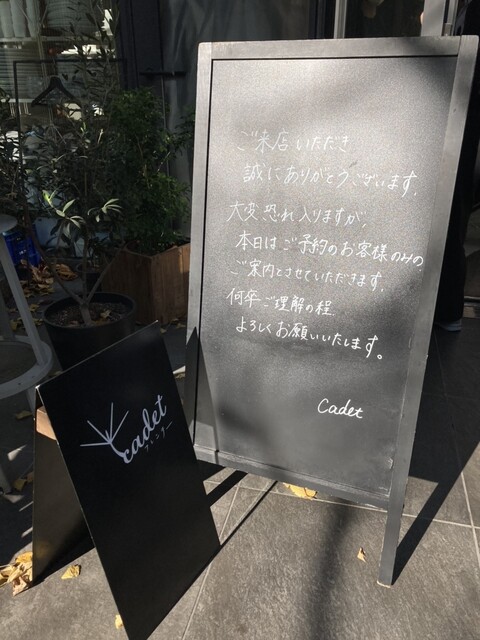 ご来店いただき
誠にありがとうございます。
大変恐れ入りますが、
本日はご予約のお客様のみの
ご案内とさせていただきます。
何卒ご理解の程
よろしくお願いいたします。
Cadet
cadet